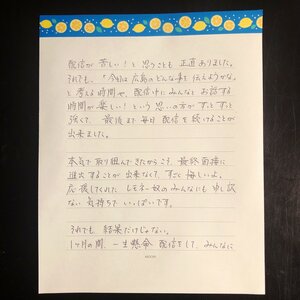 配信が苦しい！と思うことも正直ありました。
それでも、「今日は広島のどんな事を伝えようかな」
と考える時間や、配信中にみんなとお話する
時間が楽しい！という思いの方がずっとずっと
強くて、最後まで毎日配信を続けることが
出来ました。
本気で取り組んできたからこそ、最終面接に
進出することが出来なくて、すごく悔しいよ。
応援してくれたレモネー奴のみんなにも申し訳
ない気持ちでいっぱいです。
それでも、結果だけじゃない。
1ヶ月の間、一生懸命配信をして、みんなに